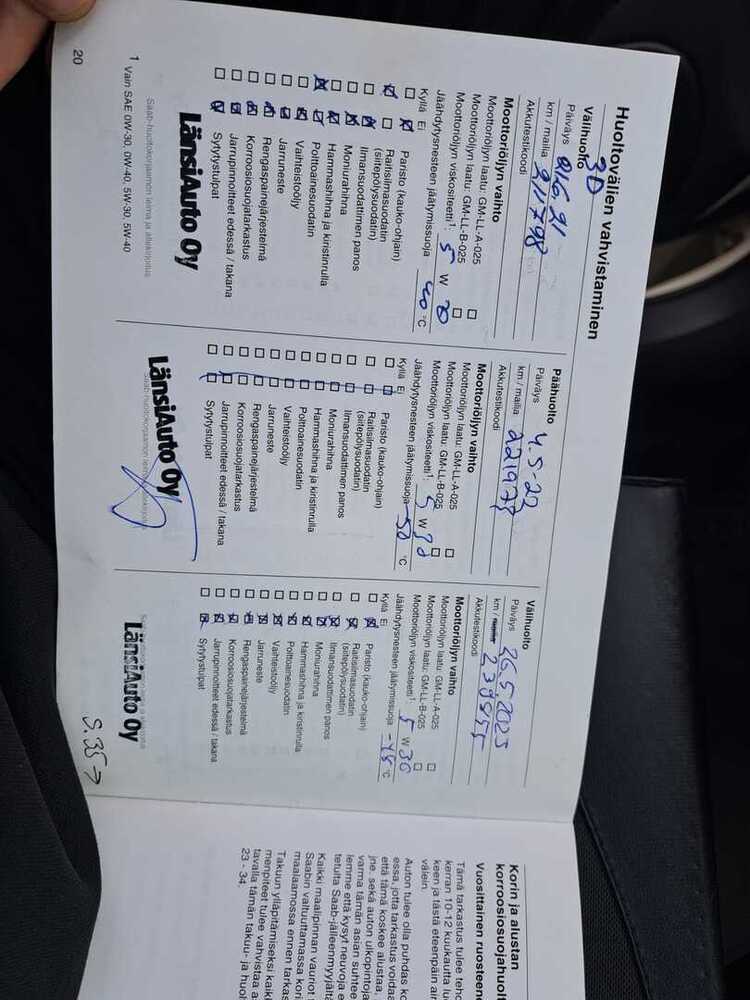 Huoltovälien vahvistaminen
Välihuolto
30
Päiväys 9/6.21
km / mailia 211798
Akkutestikoodi
Moottoriöljyn vaihto
Moottoriöljyn laatu: GM-LL-A-025
Moottoriöljyn laatu: GM-LL-B-025
Moottoriöljyn viskositeetti¹: 5 W 30
Jäähdytysnesteen jäätymissuoja 40 °C
Kyllä Ei
Paristo (kauko-ohjain)
Raitisilmasuodatin
(siitepölysuodatin)
Ilmansuodattimen panos
Moniurahihna
Hammashihna ja kiristinrulla
Polttoainesuodatin
Vaihteistoöljy
Jarruneste
Rengaspainejärjestelmä
Korroosiosuojatarkastus
Jarrupinnoitteet edessä / takana
Sytytystulpat
LänsiAuto Oy
Saab-huoltokorjaamon leima ja allekirjoitus
1 Vain SAE 0W-30, 0W-40, 5W-30, 5W-40
20
Päähuolto
Päiväys 4.5-23
km / mailia
Akkutestikoodi
Moottoriöljyn vaihto
Moottoriöljyn laatu: GM-LL-A-025
Moottoriöljyn laatu: GM-LL-B-025
Moottoriöljyn viskositeetti¹: 5 W 30
Jäähdytysnesteen jäätymissuoja -50 °C
Kyllä Ei
Paristo (kauko-ohjain)
Raitisilmasuodatin
(siitepölysuodatin)
Ilmansuodattimen panos
Moniurahihna
Hammashihna ja kiristinrulla
Polttoainesuodatin
Vaihteistoöljy
Jarruneste
Rengaspainejärjestelmä
Korroosiosuojatarkastus
Jarrupinnoitteet edessä / takana
Sytytystulpat
LänsiAuto Oy
Saab-huoltokorjaamon leima
Välihuolto
Päiväys 26.5.2025
km / mailia
Akkutestikoodi
Moottoriöljyn vaihto
Moottoriöljyn laatu: GM-LL-A-025
Moottoriöljyn laatu: GM-LL-B-025
Moottoriöljyn viskositeetti¹: 5 W 30
Jäähdytysnesteen jäätymissuoja -48 °C
Kyllä Ei
Paristo (kauko-ohjain)
Raitisilmasuodatin
(siitepölysuodatin)
Ilmansuodattimen panos
Moniurahihna
Hammashihna ja kiristinrulla
Polttoainesuodatin
Vaihteistoöljy
Jarruneste
Rengaspainejärjestelmä
Korroosiosuojatarkastus
Jarrupinnoitteet edessä / takana
Sytytystulpat
LänsiAuto Oy
S. 35 →
Korin ja alustan
korroosiosuojahuolt
Vuosittainen ruosteene
Tämä tarkastus tulee teho
kerran 10-12 kuukautta tu
keen ja tästä eteenpäin ain
välein.
Auton tulee olla puhdas ko
essa, jotta tarkastus voidaa
että tämä koskee alustaa,
jne. sekä auton ulkopintoja
varma tämän asian suhtee
lemme että kysyt neuvoja e
tetulta Saab-jälleenmyyjältä
Kaikki maalipinnan vauriot
Saabin valtuuttamassa kori
maalaamossa ennen tarkas
Takuun ylläpitämiseksi kaikk
menpiteet tulee vahvistaa a
tavalla tämän takuu- ja huol
23 - 34.